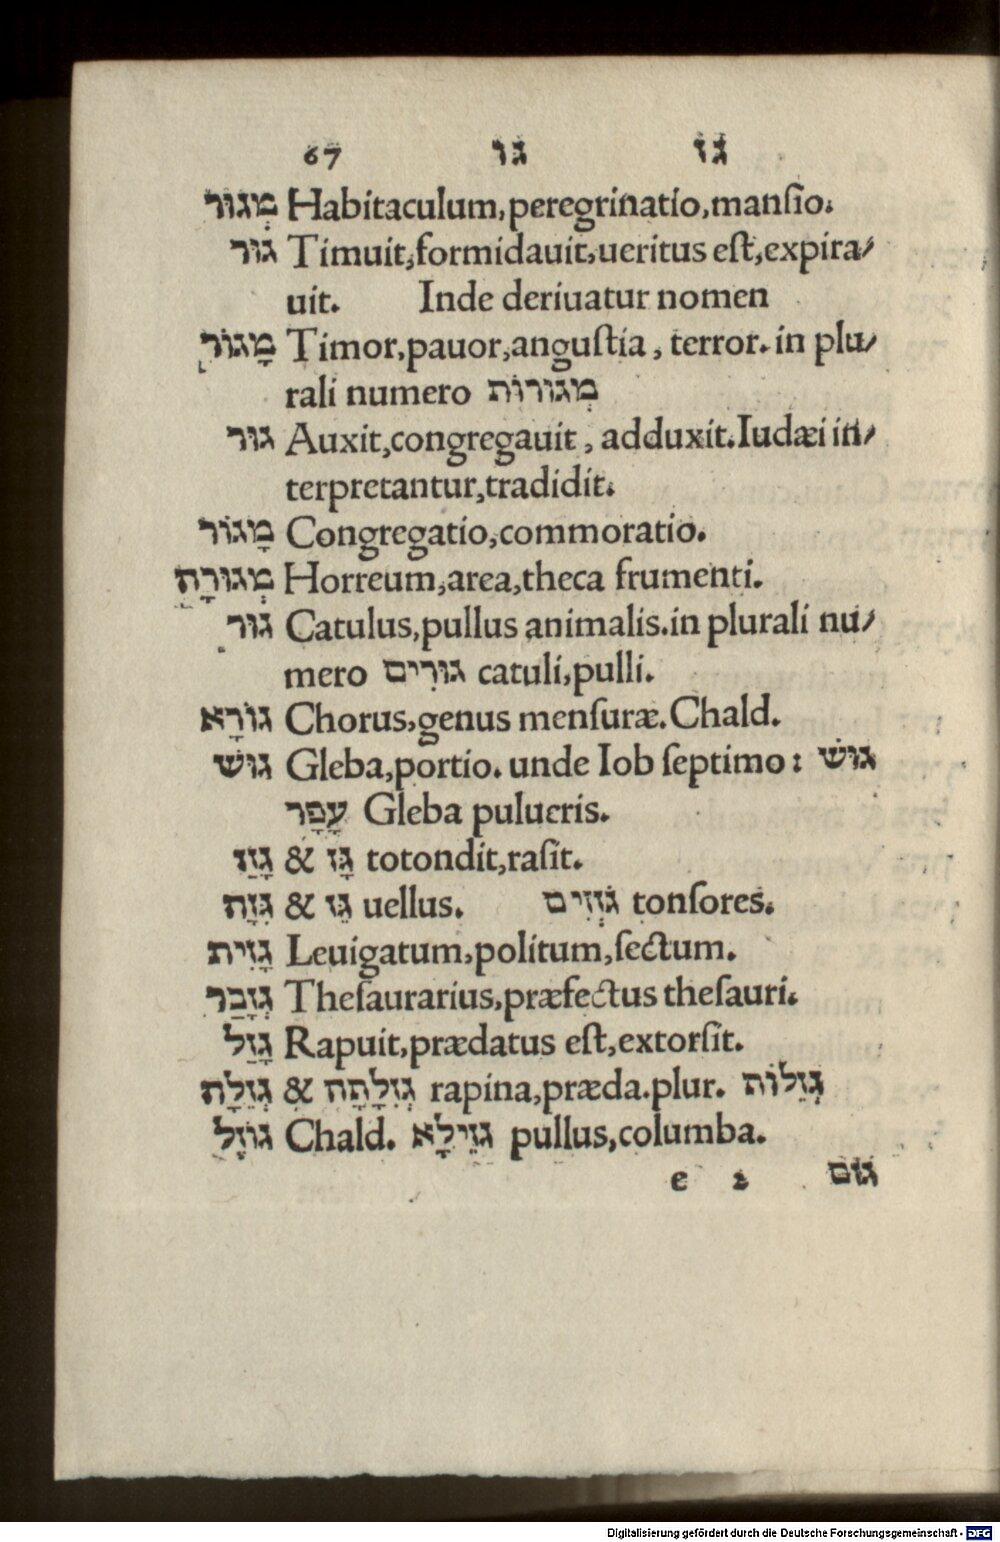 67 גו גז
מְגוּר Habitaculum,peregrinatio,manſio.
גּוּר Timuit,formidauit,ueritus eſt,expira/
uit. Inde deriuatur nomen
מָגוֹר Timor,pauor,anguſtia, terror. in plu/
rali numero מְגוּרוֹת
גּוּר Auxit,congregauit, adduxit.Iudæi in/
terpretantur,tradidit.
מָגוֹר Congregatio,commoratio.
מְגוּרָה Horreum,area,theca frumenti.
גּוּר Catulus,pullus animalis.in plurali nu/
mero גּוּרִים catuli,pulli.
גּוֹרָא Chorus,genus menſuræ.Chald.
גּוּשׁ Gleba,portio. unde Iob ſeptimo: גּוּשׁ
עָפָר Gleba pulueris.
גָּזַז & גָּז totondit,raſit.
גִּזָּה & גֵּז uellus. גֹּזְזִים tonſores.
גָּזִית Leuigatum,politum,ſectum.
גִּזְבָּר Theſaurarius,præfectus theſauri.
גָּזַל Rapuit,prædatus eſt,extorſit.
גְּזֵלָה & גְּזִלָתָה rapina,præda.plur. גְּזֵלוֹת
גּוֹזָל Chald. גּוֹזִילָא pullus,columba.
e 2 גזם